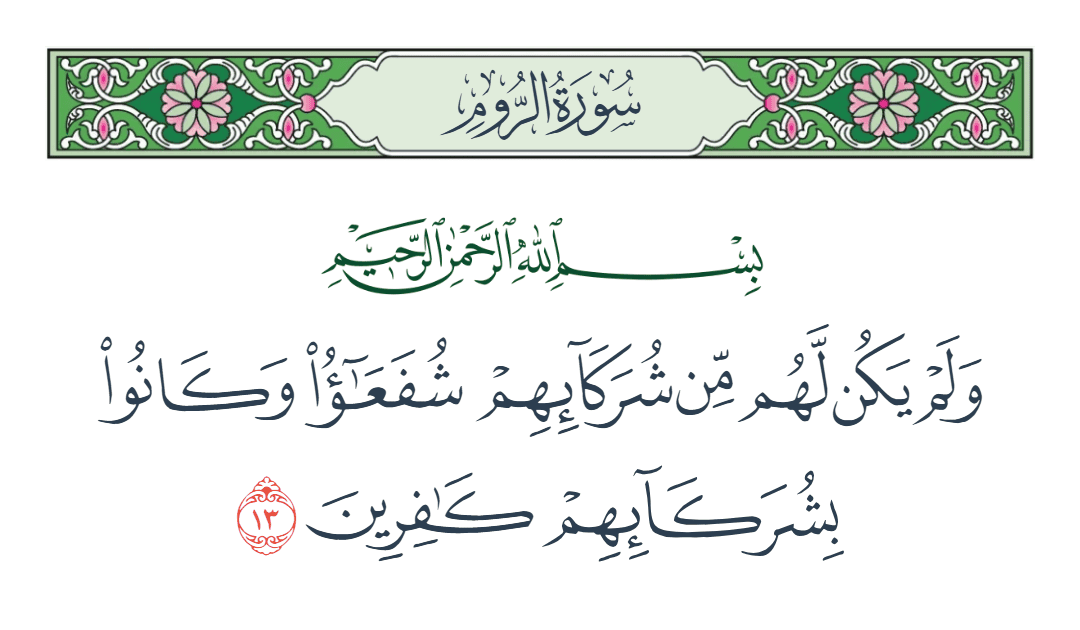 سُورَةُ الرُّومِ
بِسْمِ ٱللَّهِ ٱلرَّحْمَٰنِ ٱلرَّحِيمِ
وَلَمْ يَكُن لَّهُم مِّن شُرَكَآئِهِمْ شُفَعَٰٓؤُا۟ وَكَانُوا۟
بِشُرَكَآئِهِمْ كَٰفِرِينَ ١٣